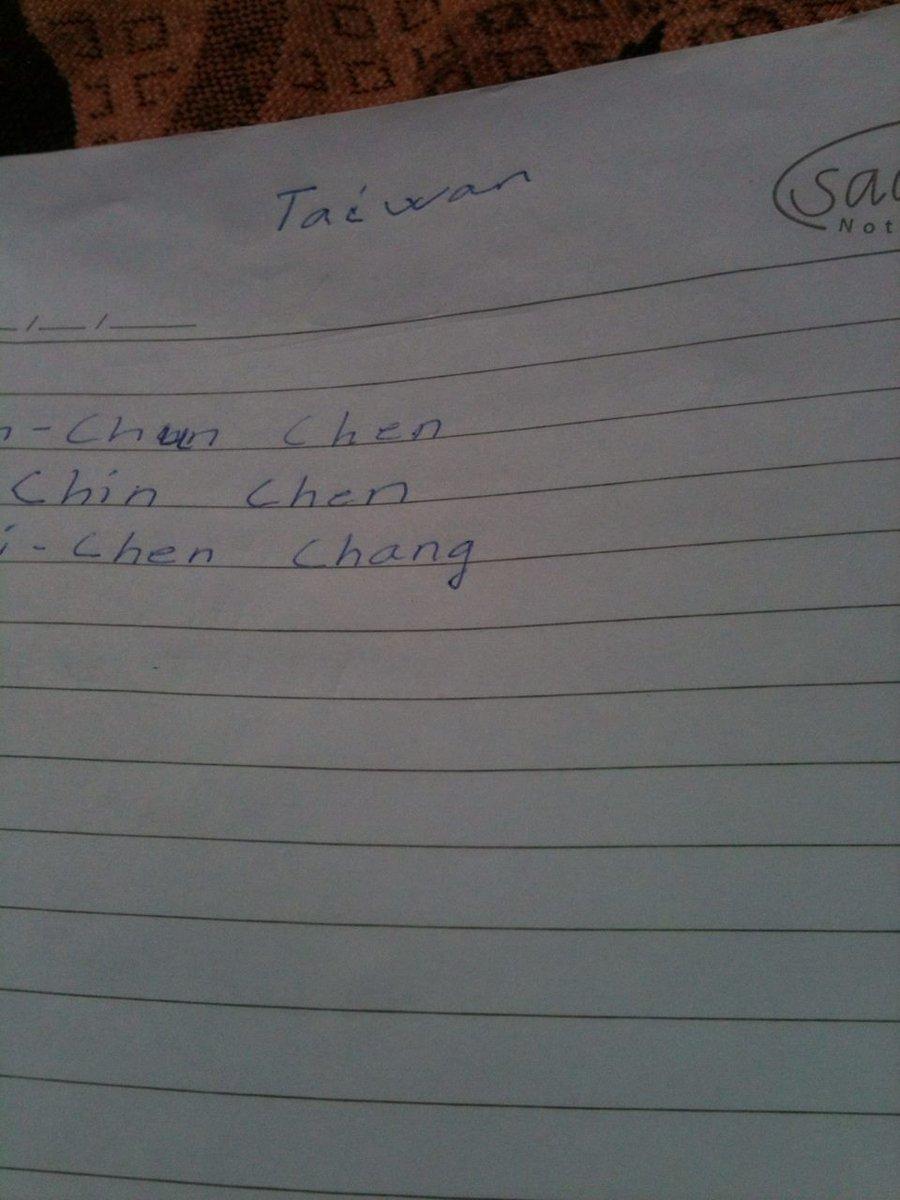 Taiwan
n-Chun Chen
Chin Chen
i-Chen Chang